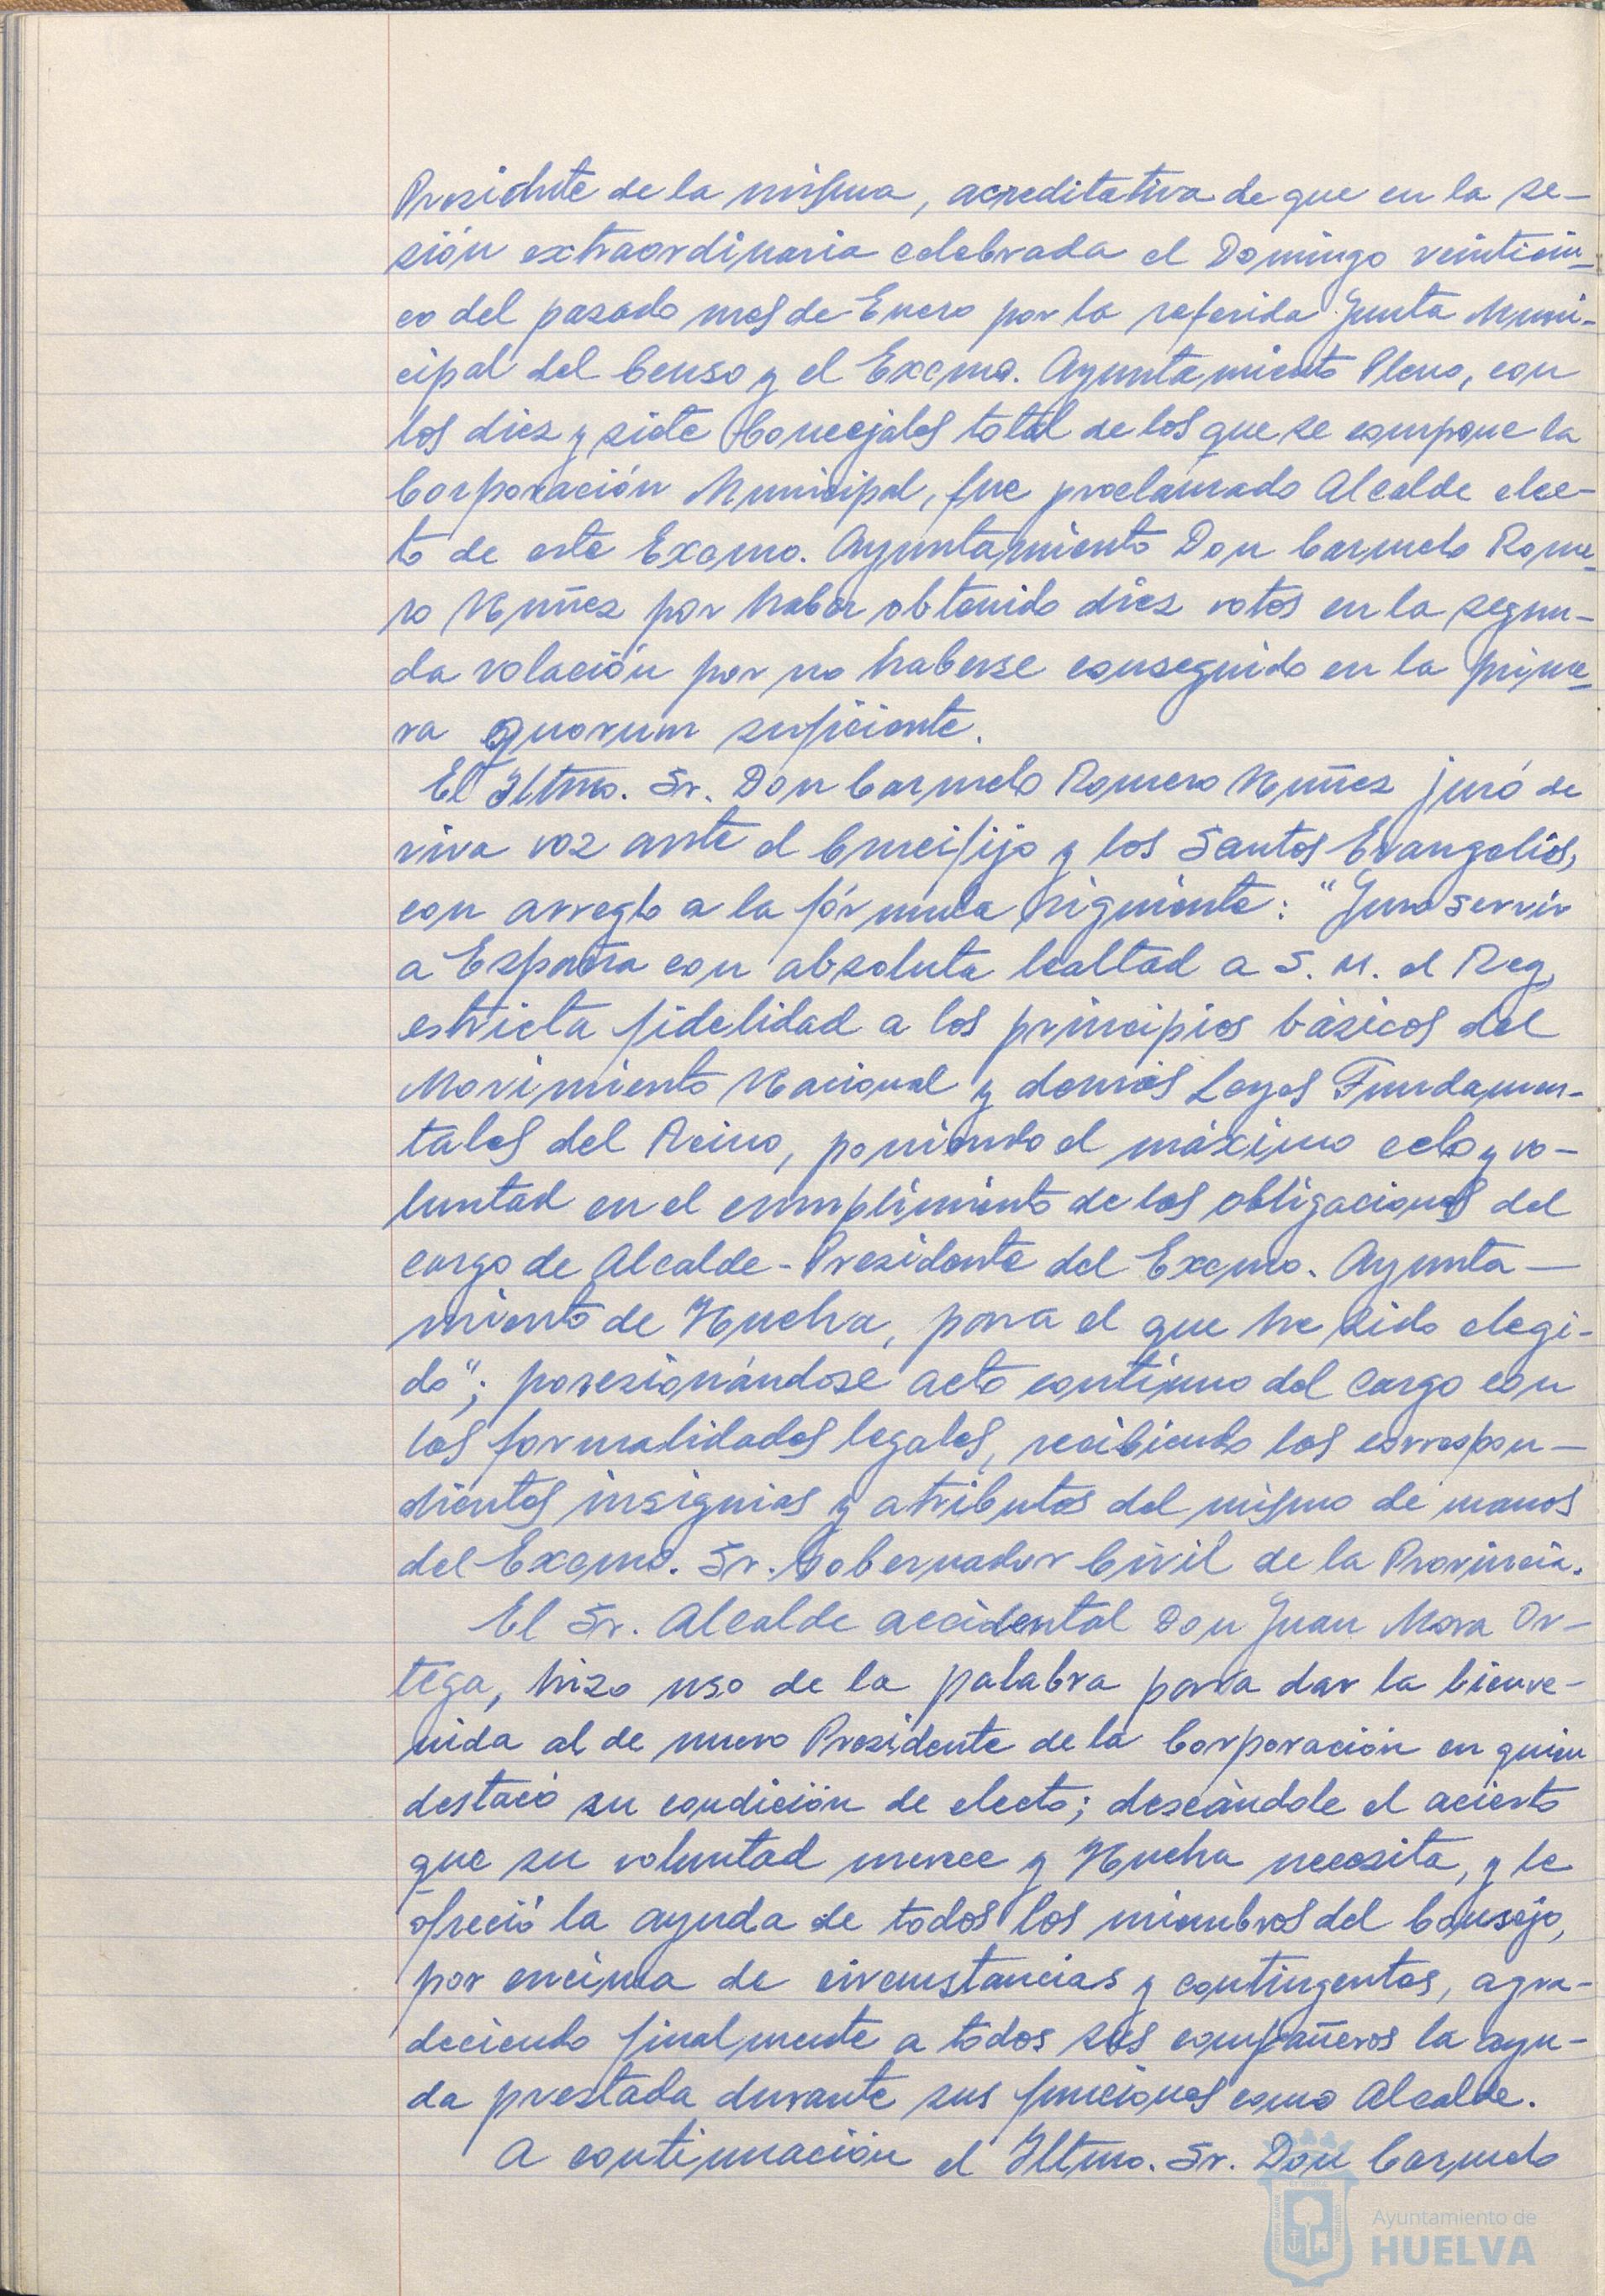 Presidente de la misma, acreditativa de que en la se-
sión extraordinaria celebrada el Domingo veinticin-
co del pasado mes de Enero por la referida Junta Muni-
cipal del Censo y el Excmo. Ayuntamiento Pleno, con
los diez y siete Concejales total de los que se compone la
Corporación Municipal, fue proclamado Alcalde elec-
to de este Excmo. Ayuntamiento Don Carmelo Rome-
ro Nuñez por haber obtenido diez votos en la segun-
da votación por no haberse conseguido en la prime-
ra quorum suficiente.
El Iltmo. Sr. Don Carmelo Romero Nuñez juró de
viva voz ante el Crucifijo y los Santos Evangelios,
con arreglo a la fórmula siguiente: "Juro servir
a España con absoluta lealtad a S. M. el Rey,
estricta fidelidad a los principios básicos del
Movimiento Nacional y demás Leyes Fundamen-
tales del Reino, poniendo el máximo celo y vo-
luntad en el cumplimiento de las obligaciones del
cargo de Alcalde-Presidente del Excmo. Ayunta-
miento de Huelva, para el que he sido elegi-
do"; posesionándose acto continuo del cargo con
las formalidades legales, recibiendo los correspon-
dientes insignias y atributos del mismo de manos
del Excmo. Sr. Gobernador Civil de la Provincia.
El Sr. Alcalde accidental Don Juan Mora Or-
tega, hizo uso de la palabra para dar la bienve-
nida al de nuevo Presidente de la Corporación en quien
destacó su condición de electo; deseándole el acierto
que su voluntad merece y Huelva necesita, y le
ofreció la ayuda de todos los miembros del Consejo,
por encima de circunstancias y contingentes, agra-
deciendo finalmente a todos sus compañeros la ayu-
da prestada durante sus funciones como Alcalde.
A continuación el Iltmo. Sr. Don Carmelo
Ayuntamiento de
HUELVA